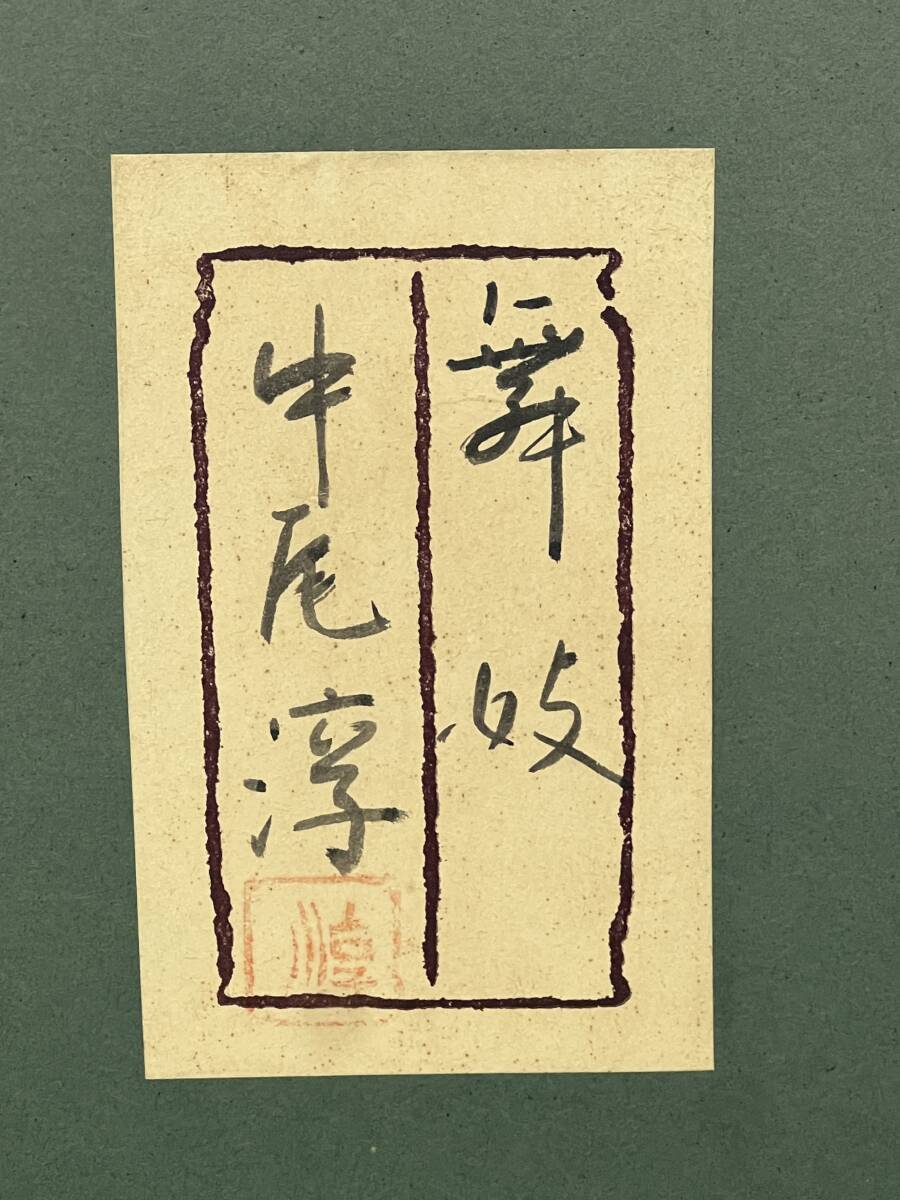 舞妓
中尾淳
淳